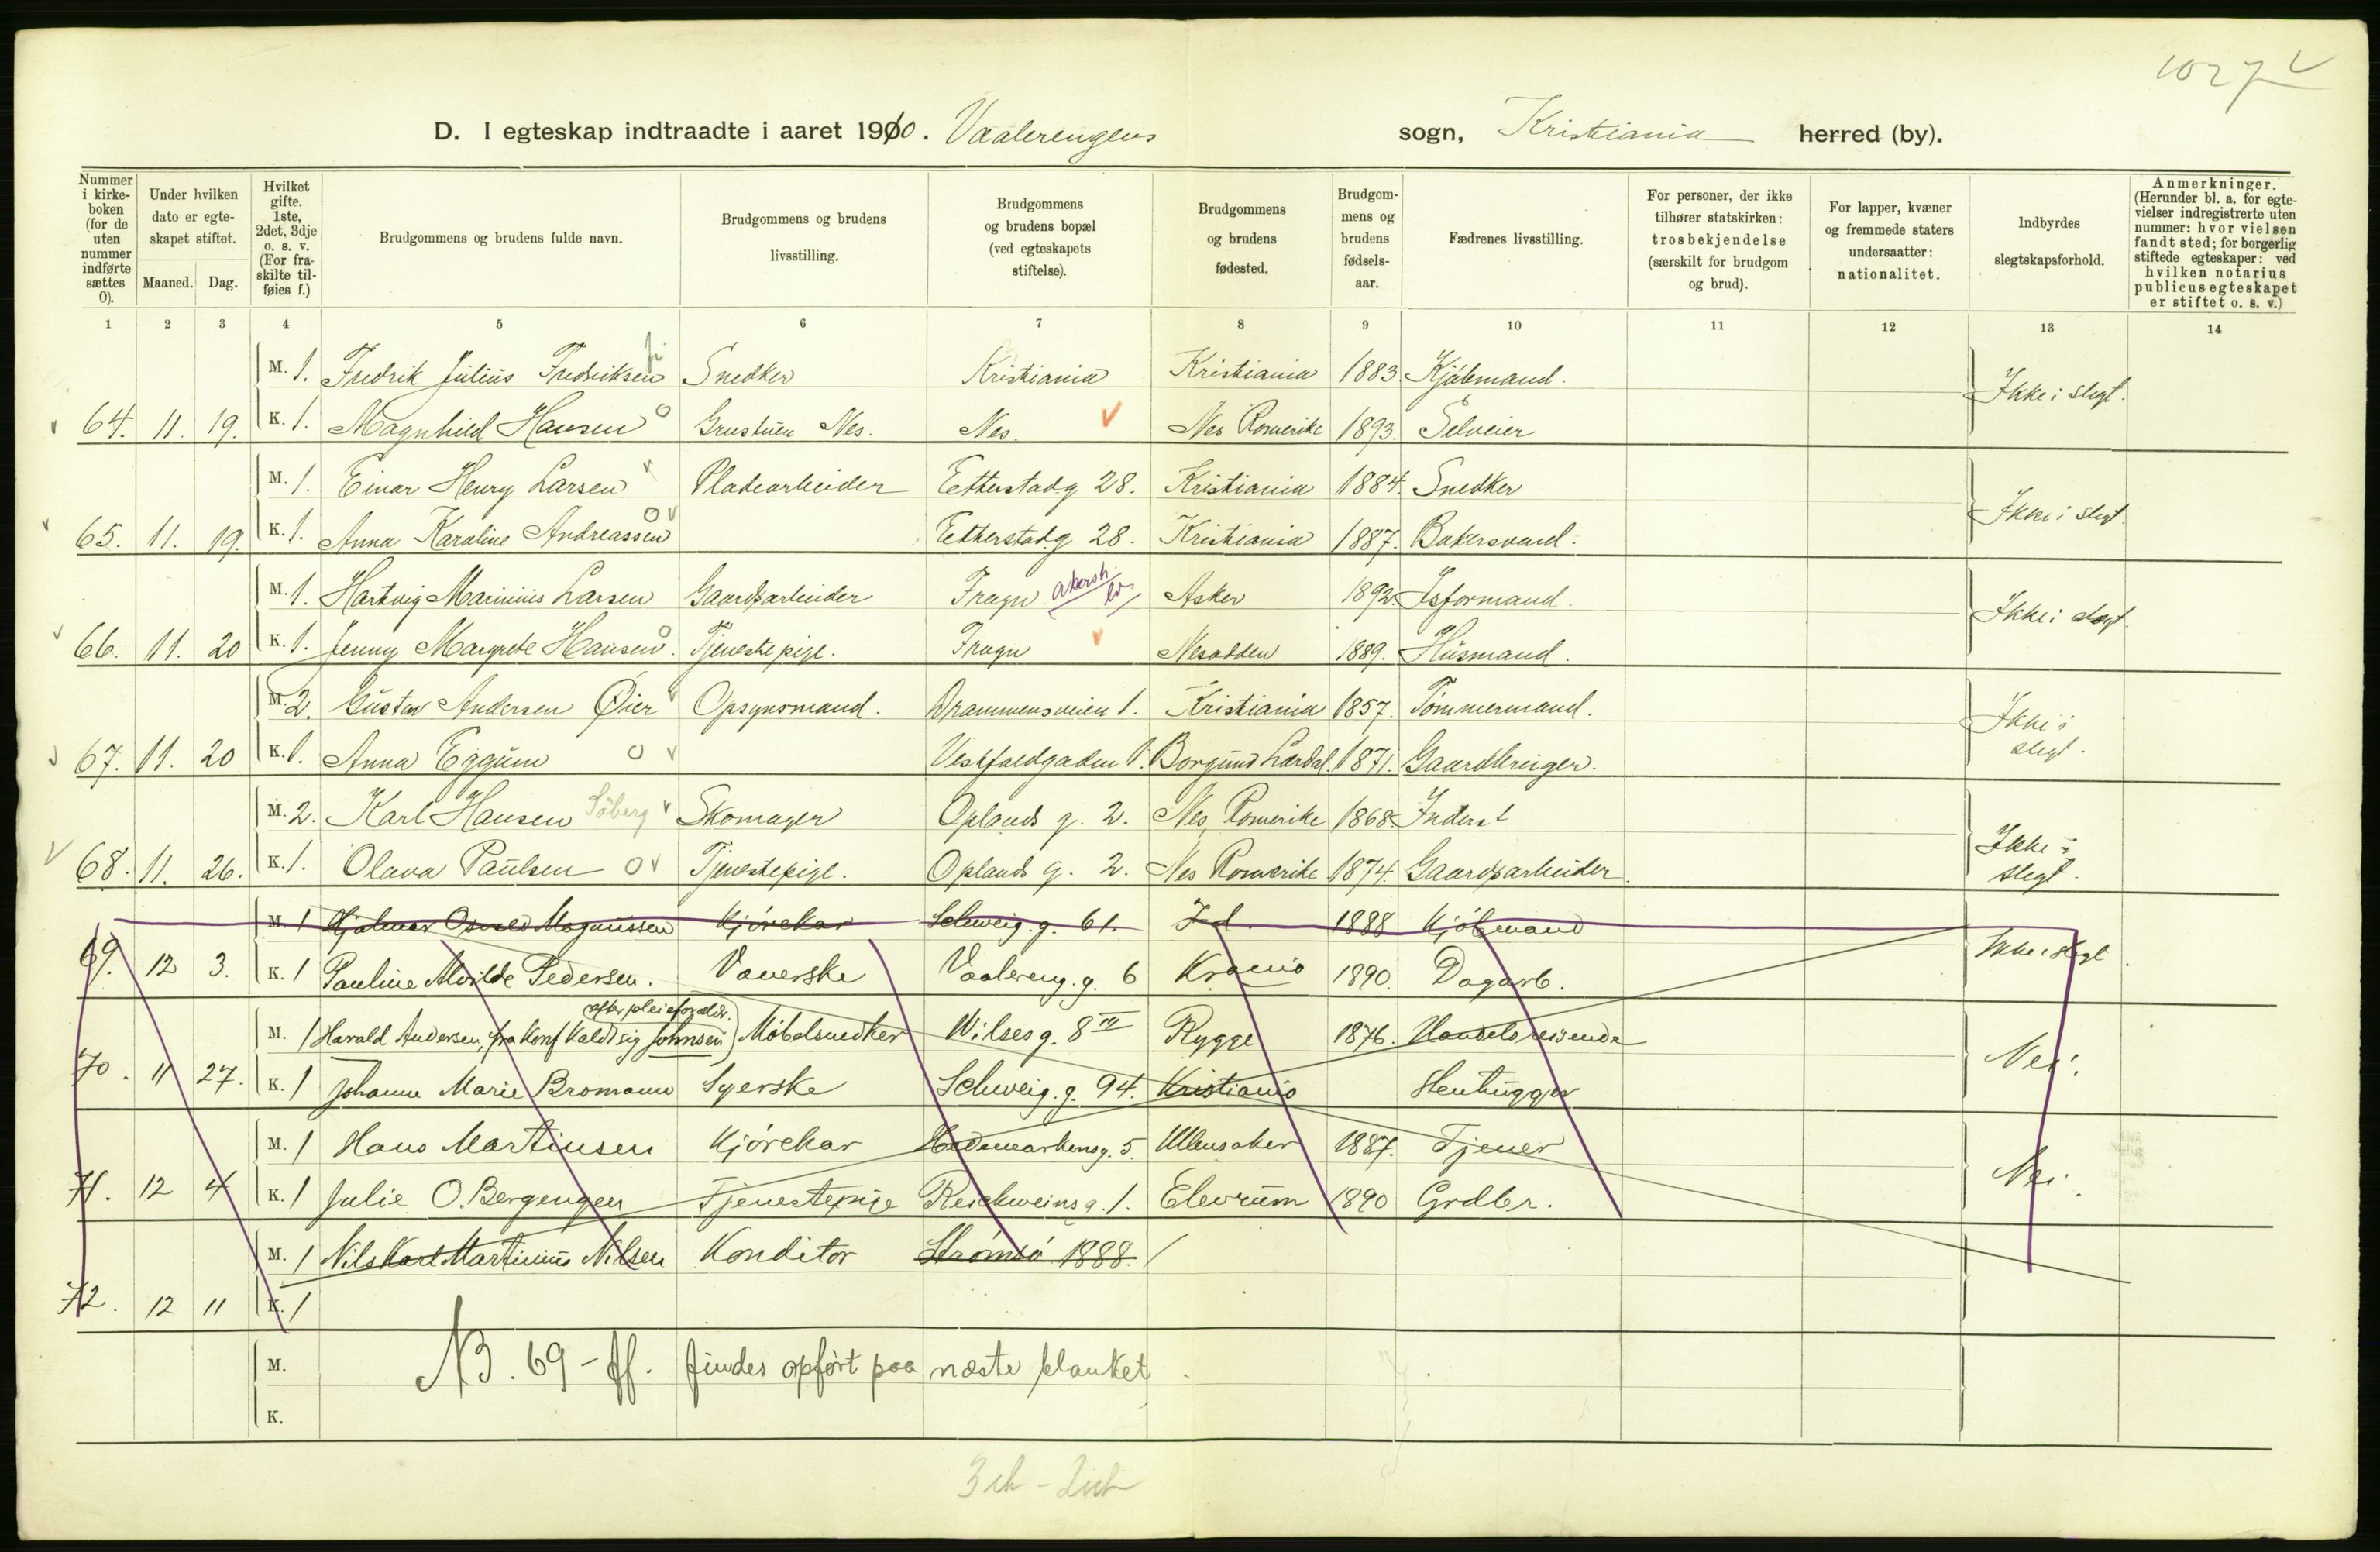 1027
D. I egteskap indtraadte i aaret 1910. Vaalerengens sogn, Kristiania herred (by).
Nummer i kirkeboken (for de uten nummer indførte sættes 0).
Under hvilken dato er egteskapet stiftet.
Maaned. Dag.
Hvilket gifte. 1ste, 2det, 3dje o. s. v. (For fraskilte tilføies f.)
Brudgommens og brudens fulde navn.
Brudgommens og brudens livsstilling.
Brudgommens og brudens bopæl (ved egteskapets stiftelse).
Brudgommens og brudens fødested.
Brudgommens og brudens fødselsaar.
Fædrenes livsstilling.
For personer, der ikke tilhører statskirken: trosbekjendelse (særskilt for brudgom og brud).
For lapper, kvæner og fremmede staters undersaatter: nationalitet.
Indbyrdes slegtskapsforhold.
Anmerkninger. (Herunder bl. a. for egtevielser indregistrerte uten nummer: hvor vielsen fandt sted; for borgerlig stiftede egteskaper: ved hvilken notarius publicus egteskapet er stiftet o. s. v.)
1 2 3 4 5 6 7 8 9 10 11 12 13 14
M. 1. Fredrik Julius Fredriksen Snedker Kristiania Kristiania 1883. Kjølemand. Ikke i slegt.
64. 11. 19. K. 1. Magnhild Hansen Nes. Nes. Nes Romerike 1893. Selveier
M. 1. Einar Henry Larsen Pladearbeider Etterstadg 28. Kristiania 1884. Snedker Ikke i slegt.
65. 11. 19. K. 1. Anna Karoline Andreassen Etterstadg 28. Kristiania 1887. Bakersvend.
M. 1. Hartvig Marinius Larsen Gaardsarbeider Frogn Akersh. Asker 1892. Isformand. Ikke i slegt.
66. 11. 20 K. 1. Jenny Margrete Hansen. Tjenestepige. Frogn Nesodden 1889. Husmand.
M. 2. Gustav Andersen Øier Opsynsmand. Drammensveien 1. Kristiania 1857. Tømmermand. Ikke i slegt.
67. 11. 20 K. 1. Anna Eggum Vestfoldgaden 1. Borgund Lærdal. 1871. Gaardbruger.
M. 2. Karl Hansen Söberg Skomager Oplands g. 2. Nes Romerike 1868 Inderst Ikke i slegt.
68. 11. 26. K. 1. Olava Paulsen Tjenestepige. Oplands g. 2. Nes Romerike 1874. Gaardsarbeider.
M. 1 Hjalmar Osvald Magnussen Kjørekar Schweig. g. 61. Id. 1888 Kjøbmand Ikke i slegt
69. 12 3. K. 1 Pauline Alvilde Pedersen. Væverske Vaalereng. g. 6 Krania 1890. Dagarb.
efter pleieforældr.
M. 1 Harald Andersen, fra Konf kaldt sig Johnsen) Møbelsnedker Wilses g. 8 III Rygge 1876. Handelsreisende Nei.
70. 11 27. K. 1 Johanne Marie Bromann Syerske Schweig. g. 94. Kristiania Stenhugger
M. 1 Hans Martinsen Kjørekar Hedemarkensg. 5. Ullensaker 1887. Tjener Nei.
71. 12 4 K. 1 Julie O. Bergengen Tjenestepige Reichweins g. 1. Elverum 1890 Grdbr.
M. 1 Nils Karl Martinius Nilsen Konditor Strømsø 1888.
72. 12 11 K. 1
M. NB. 69 - ff. findes opført paa næste blanket
K.